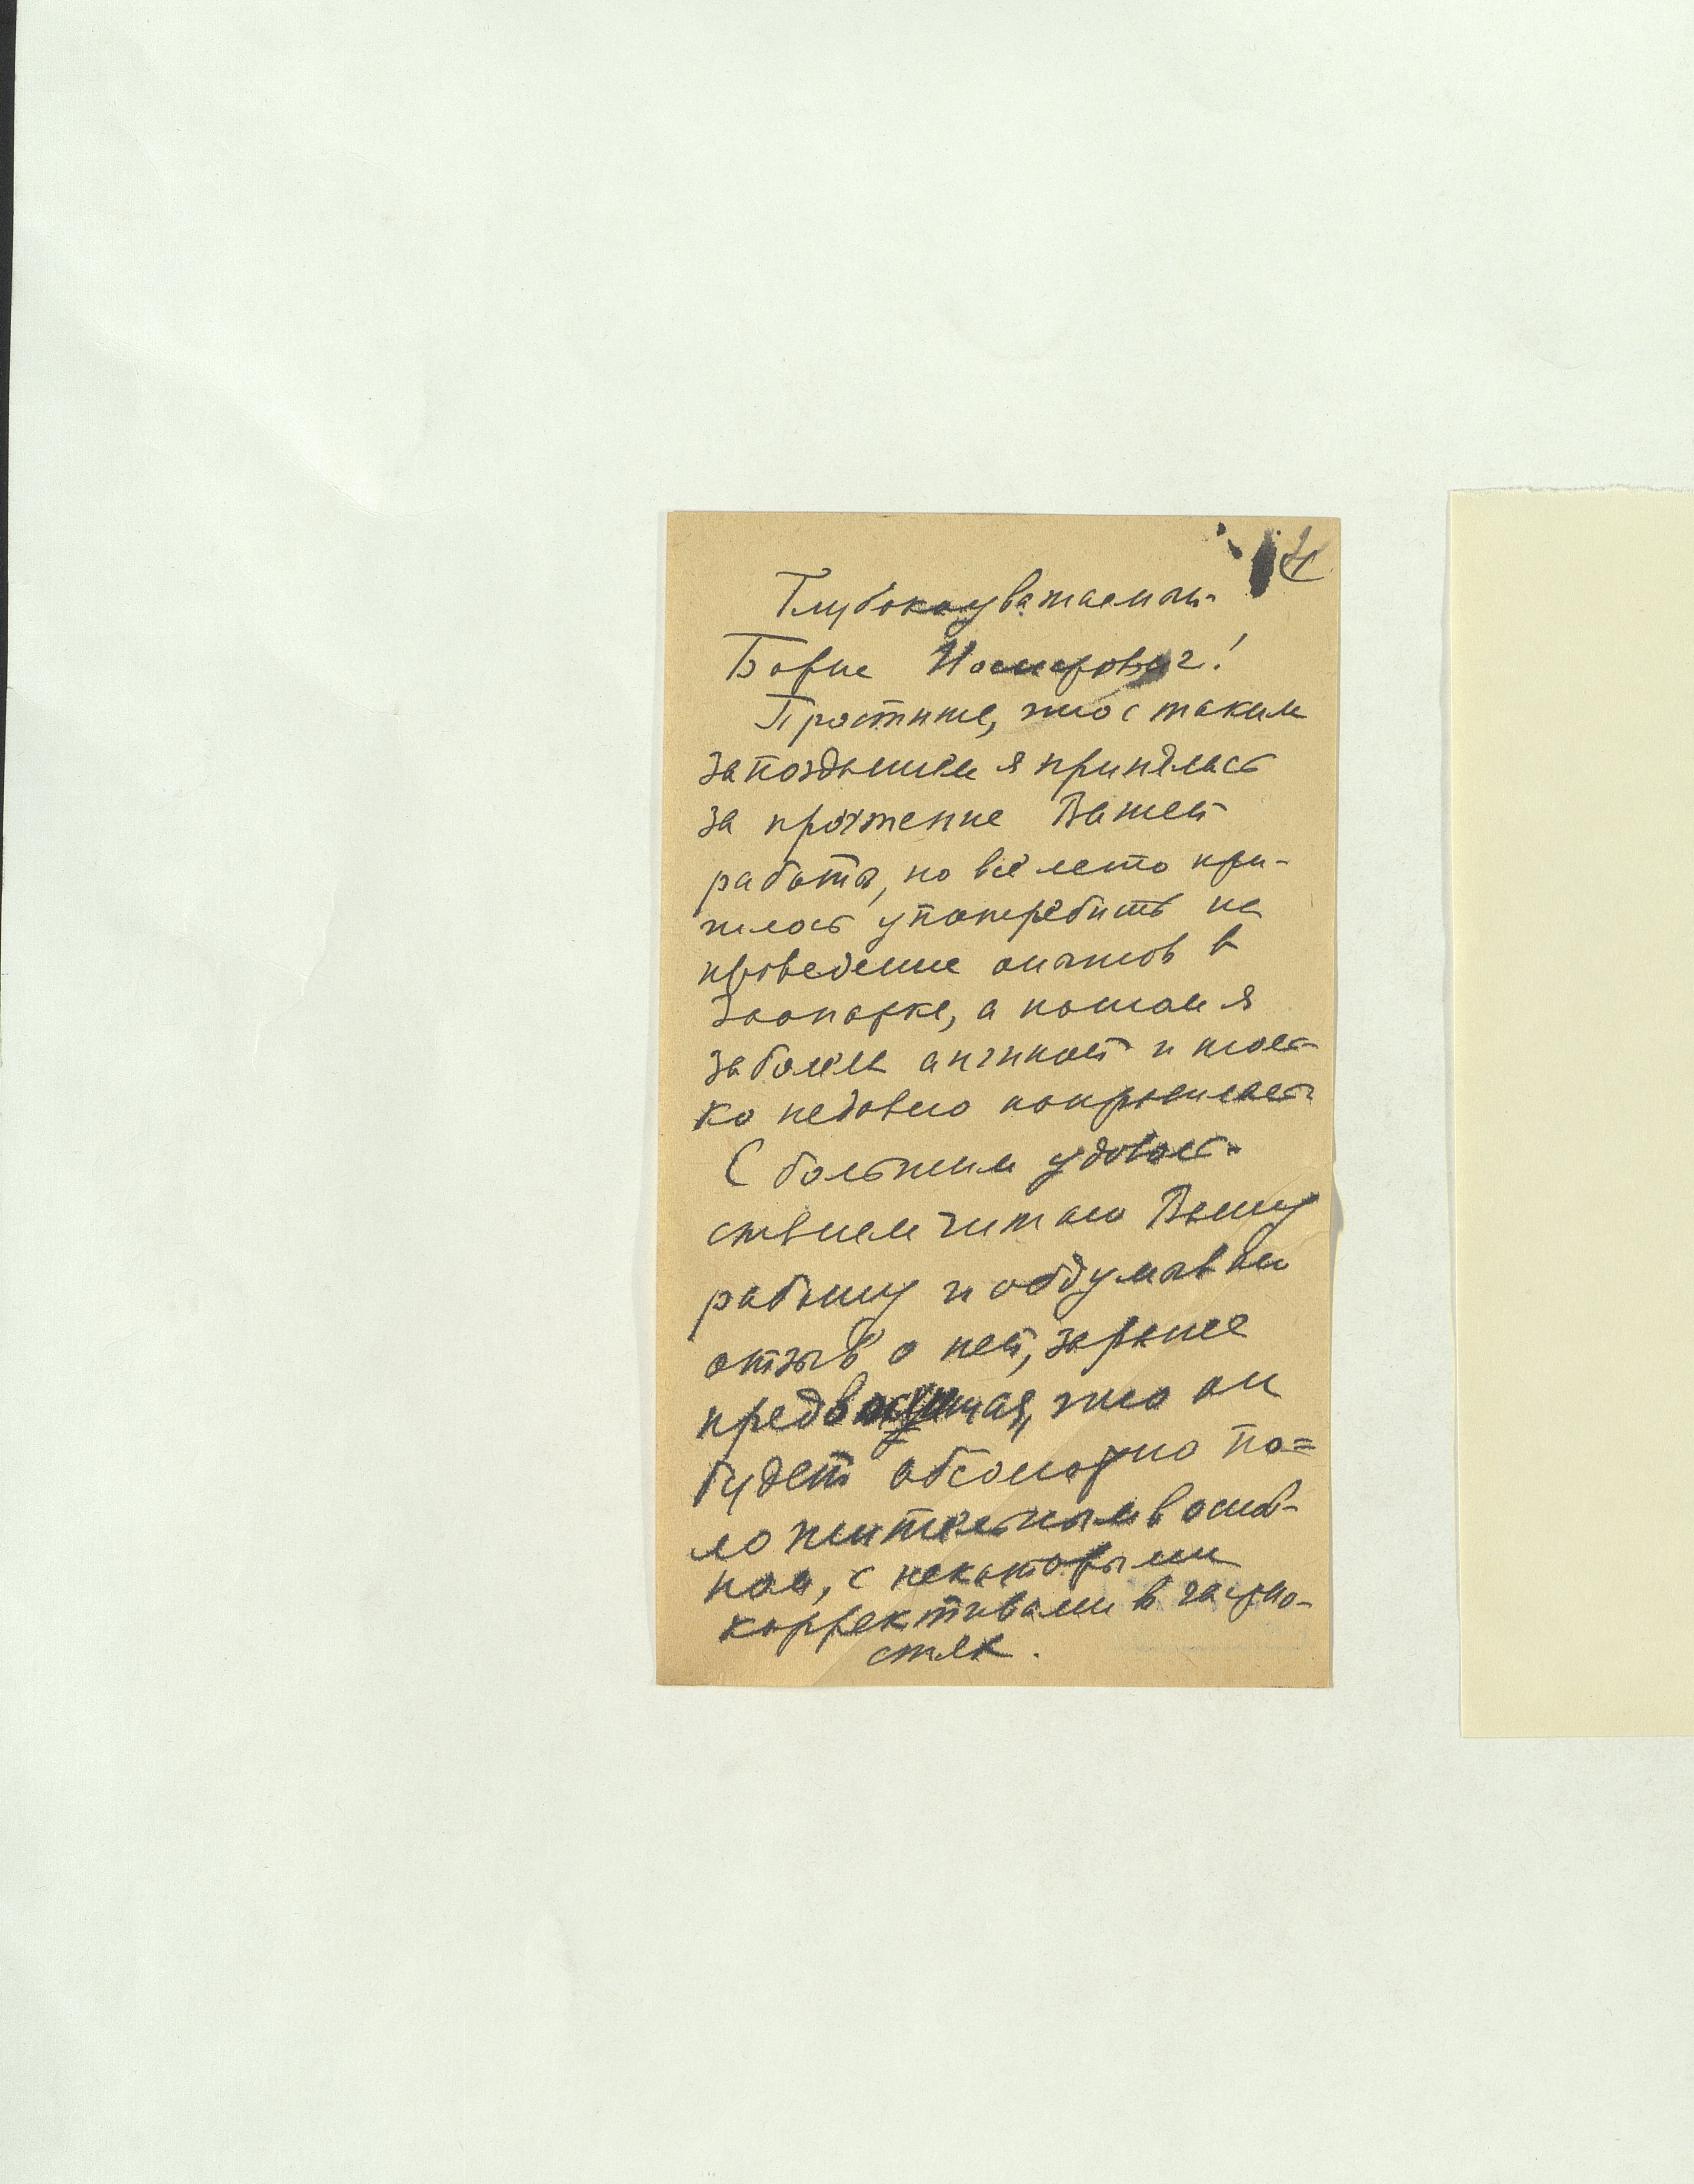 4
Глубокоуважаемый
Борис
Простите, что с таким
запозданием я принялась
за прочтение Вашей
работы, но всё лето при-
шлось употребить на
проведение опытов в
Зоопарке, а потом я
заболела ангиной и толь-
ко недавно поправилась
С большим удоволь-
ствием читаю Вашу
работу и обдумываю
отзыв о ней, заранее
предвкушая, что он
будет абсолютно по=
ложительным в основ-
ном, с некоторыми
коррективами в частно-
стях.